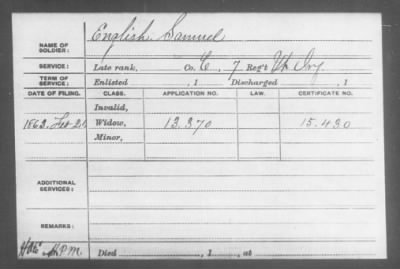 NAME OF SOLDIER: English, Samuel
SERVICE: Late rank, Co. C, 7 Reg't Inf.
TERM OF SERVICE: Enlisted , 1 Discharged , 1
DATE OF FILING. CLASS. APPLICATION NO. LAW. CERTIFICATE NO.
Invalid,
1863. Feb Widow, 13.370 15.430
Minor,
ADDITIONAL SERVICES:
REMARKS:
Died , 1 , at